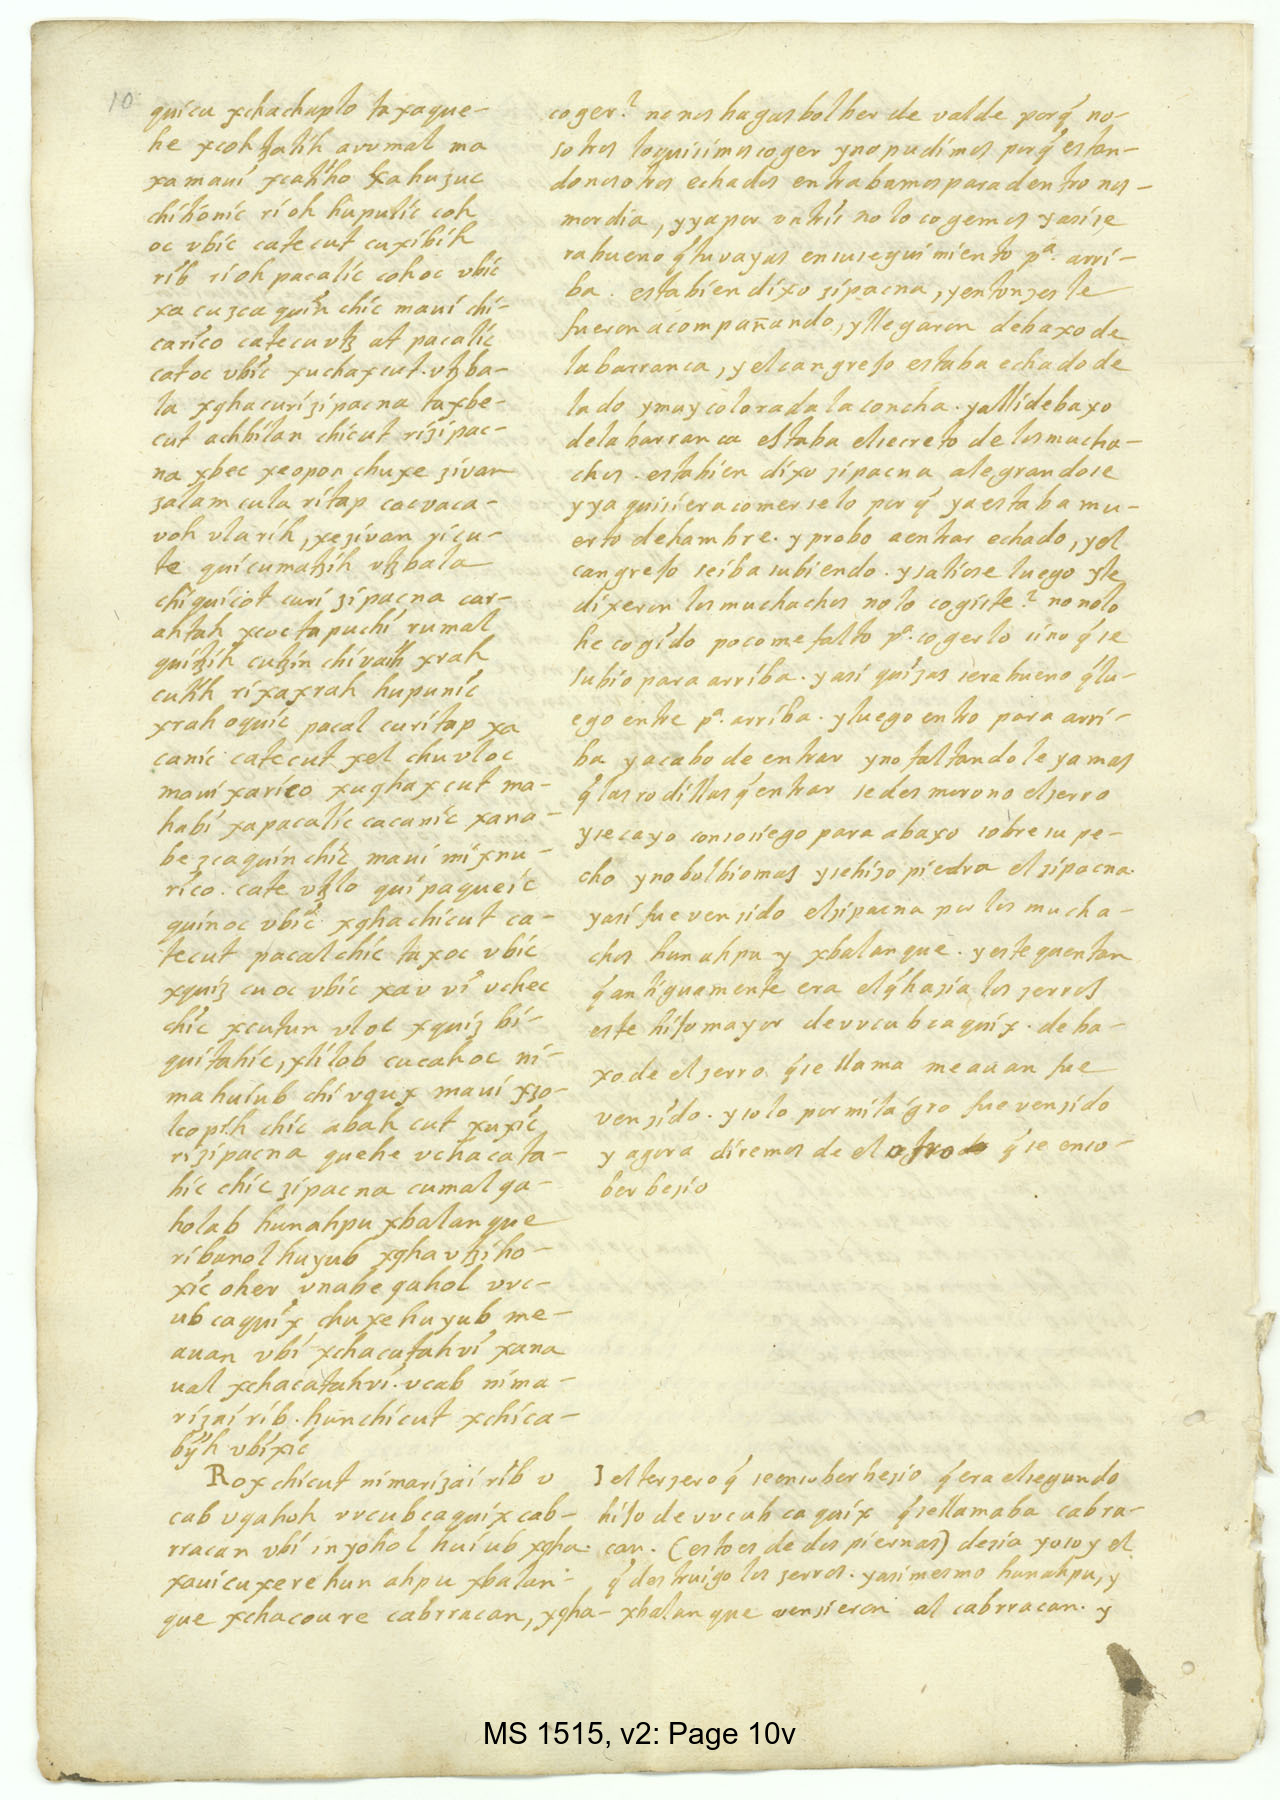 10
quicu xchachuplo ta xaque-
he xcohtzatih avumal ma
xa maui xcatiho ka huzuc
chikonic ri oh hupulic coh
oc vbic catecut cuxibih
rib ri oh pacalic cohoc vbic
xa cuzcaquin chic maui chi-
carico catecu vtz at pacalic
catoc vbic xuchaxcut. vtz ba-
la xghacuri zipacna ta xbe-
cut achbilan chicut ri zipac-
na xbec xeopon chuxe zivan
zalam cula ri tap cacvaca-
voh vlarih, xezivan ricu-
te quicumatzih vtz bala
chiquicot curi zipacna car-
ahtah xcoc ta puchi rumal
quitzih cutzin chi vaih xrah
cutih ri xaxrah hupunic
xrah oquic pacal curi tap xa
canic catecut xel chuvloc
maui xarico xughaxcut ma-
habi xapacalic cacanic xana-
be zcaquin chic maui mixnu-
rico. cate vtz lo quipaqueic
quinoc vbic xghachicut ca-
tecut pacal chic ta xoc vbic
xquiz cuoc vbic xav vi vchec
chic xcutun vloc xquiz bi-
quitahic, xlilob cucahoc ni-
ma huiub chi vqux maui xzo-
lcopih chic abah cut xuxic
ri zipacna quehe vchacata-
hic chic zipacna cumal qa-
holab hunahpu xbalanque
ri banol huyub xgha vtziho-
xic oher vnabe qahol vvc-
ub caquix chuxe huyub me-
auan vbi xchacatzah vi xana
ual xchacatahvi. vcab nima-
rizai rib. hun chicut xchica-
biyh vbixic
Rox chicut nimarizai rib v
cab vqahoh vvcubcaquix cab-
rracan vbi in yohol huiub xgha
xauicuxere hun ahpu xbalan-
que xchacoure cabrracan, xgha-
coger? no nos hagas bolher de valde porq̃ no-
sotros lo quisimos coger y no pudimos porq̃ estan-
do nosotros echados entrabamos para dentro nos-
mordia, y ya por vn tris no lo cogemos y asi se
ra bueno q̃ tu vayas en su seguimiento pª. arri-
ba. esta bien dixo zipacna, y entonzes le
fueron acompañando, y llegaron debaxo de
la barranca, y el cangrejo estaba echado de
lado y muy colorada la concha. y alli debaxo
de la barranca estaba el secreto de los mucha-
chos. esta bien dixo zipacna alegrandose
y ya quisiera comerselo por q̃ ya estaba mu-
erto de hambre. y probo a entrar echado, y el
cangrejo se iba subiendo. y saliose luego y le
dixeron los muchachos no lo cogiste? no no lo
he cogido poco me falto pª. cogerlo sino q̃ se
subio para arriba. y asi quizas sera bueno q̃ lu-
ego entre pª. arriba. y luego entro para arri-
ba y acabo de entrar y no faltandole ya mas
q̃ las rodillas q̃ entrar se desmorono el zerro
y se cayo con sosiego para abaxo sobre su pe-
cho y no bolbio mas y se hizo piedra el zipacna.
y asi fue venzido el zipacna por los mucha-
chos hunahpu y xbalanque. y este quentan
q̃ antiguamente era el q̃ hazia los zerros
este hijo mayor de vvcub caquix. deba-
xo de el zerro q̃ se llama meauan fue
venzido. y solo por milagro fue venzido
y agora diremos de el otro q̃ se enso-
berbezio
3 el terzero q̃ se ensoberbezio q̃ era el segundo
hijo de vvcub caquix q̃ se llamaba cabra-
can. (esto es de dos piernas) dezia yo soy el
q̃ destruigo los zerros. y asi mesmo hunahpu, y
xbalanque venzieron al cabrracan. y
MS 1515, v2: Page 10v